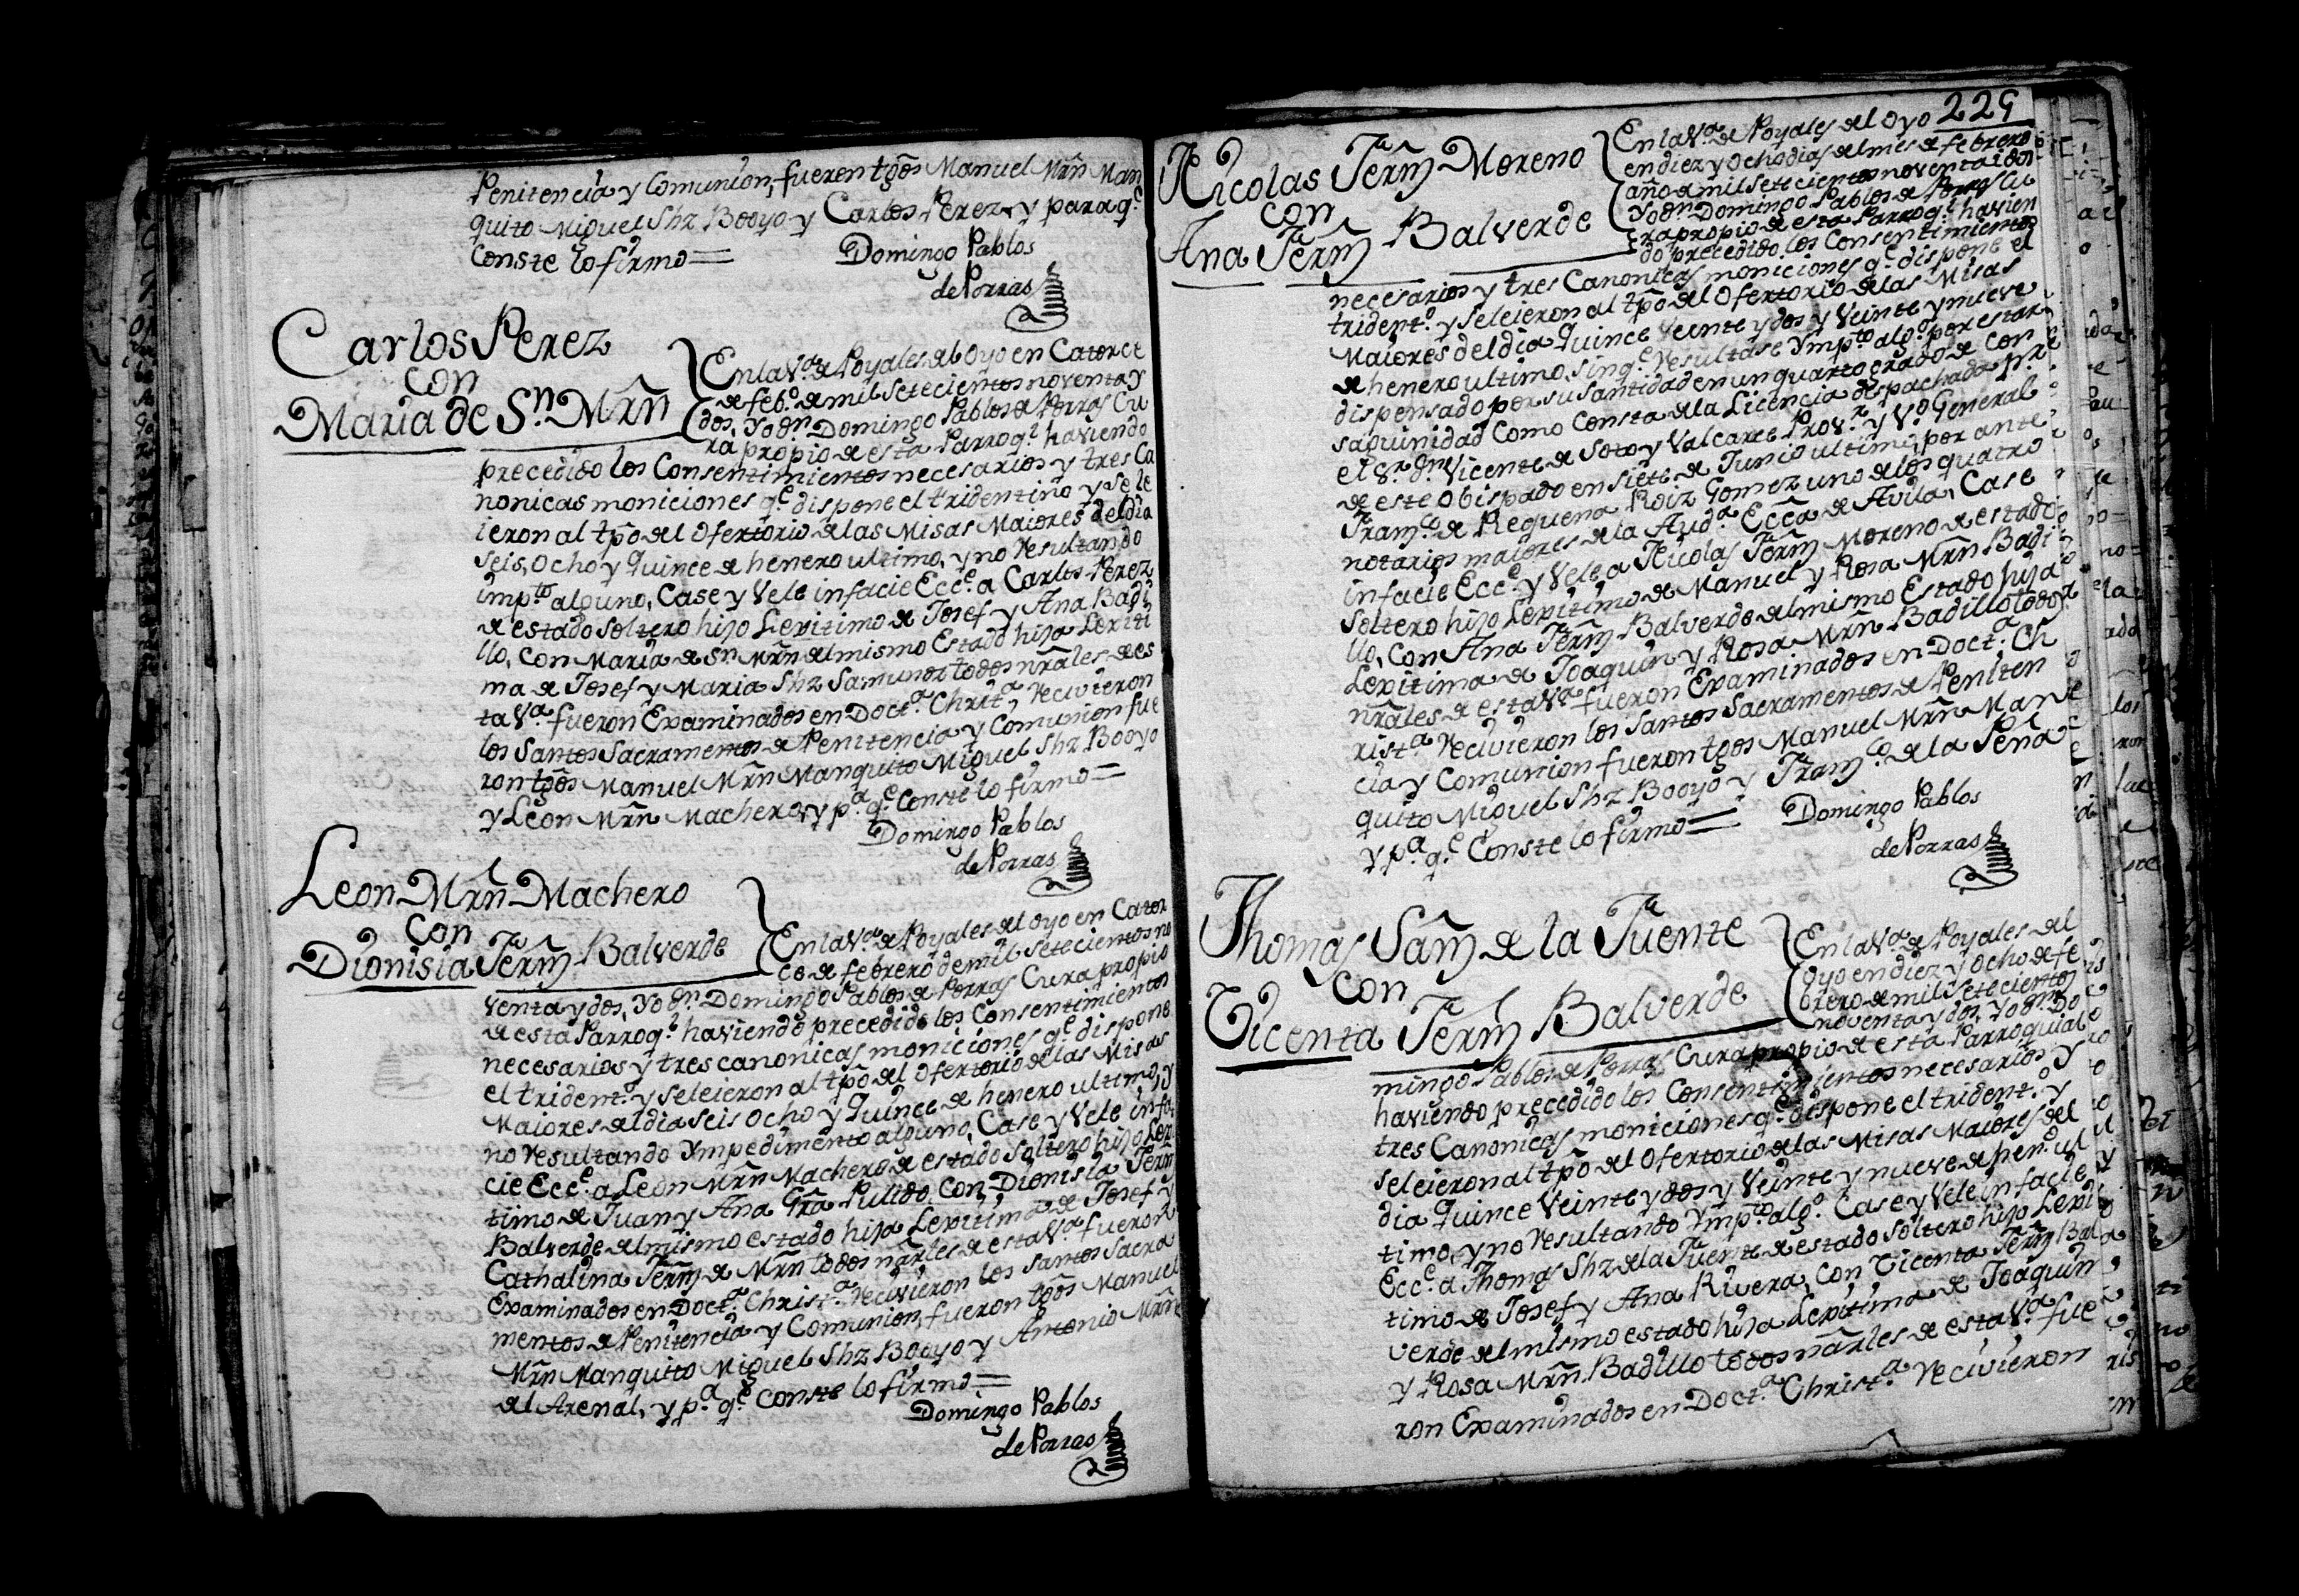 Penitencia y Comunion, fueron tg̃os Manuel Mrñ Man
quito Miguel Shz Booyo y Carlos Perez, y para q.e
Conste lo firmo =
Domingo Pablos
de Porras
Carlos Perez
con
Maria de S.n Mrñ
En la V.a de Poyales del Oyo en Catorce
de feb.o de mil setecientos noventa y
dos, Yo dn. Domingo Pablos de Porras Cu
ra propio de esta Parroq.l haviendo
precedido los Consentimientos necesarios y tres Ca
nonicas moniciones q.e dispone el tridentino y se le
ieron al tp̃o del Ofertorio de las Misas Maiores del dia
seis, ocho y Quince de henero ultimo, y no resultando
imp.to alguno, Case y Vele in facie Ecc.e a Carlos Perez
de estado soltero hijo Lexitimo de Josef y Ana Badi
llo, con Maria de Sn Mrñ del mismo Estado hija Lexiti
ma de Josef y Maria Shz Samunoz todos nr̃ales de es
ta V.a fueron Examinados en Doct.a Christ.a, recivieron
los Santos Sacramentos de Penitencia y Comunion fue
ron tg̃os Manuel Mrñ Manquito Miguel Shz Booyo
y Leon Mrñ Machero, y p.a q.e Conste lo firmo =
Domingo Pablos
de Porras
Leon Mrñ Machero
con
Dionisia Ferñz Balverde
En la V.a de Poyales del oyo en Cator
ce de febrero de mil setecientos no
venta y dos, Yo dn. Domingo Pablos de Porras Cura propio
de esta Parroq.l haviendo precedido los Consentimientos
necesarios y tres canonicas moniciones q.e dispone
el trident.o y se leieron al tp̃o del Ofertorio de las Misas
Maiores del dia seis ocho y Quince de henero ultimo, y
no resultando Ympedimento alguno, Case y Vele in fa
cie Ecc.e a Leon Mrñ Machero de estado soltero hijo Lexi
timo de Juan y Ana Gr̃a Pulido, con Dionisia Ferñz
Balverde del mismo estado hija Lexitima de Josef y
Cathalina Ferñz de Mrñ todos nr̃ales de esta V.a fueron
Examinados en Doct.a Christ.a recivieron los santos Sacra
mentos de Penitencia y Comunion, fueron tg̃os Manuel
Mrñ Manquito Miguel Shz Booyo y Antonio Mrñ
del Arenal, y p.a q.e Conste lo firmo =
Domingo Pablos
de Porras
229
Nicolas Ferñz Moreno
con
Ana Ferñz Balverde
En la V.a de Poyales del Oyo
en diez y Ocho dias del mes de febrero
año de mil setecientos noventa i dos
Yo dn. Domingo Pablos de Porras Cu
ra propio de esta Parroq.l havien
do precedido los Consentimientos
necesarios y tres Canonicas moniciones q.e dispone el
trident.o y se leieron al tp̃o del Ofertorio de las Misas
Maiores del dia Quince Veinte y dos y Veinte y nueve
de henero ultimo, sin q.e resultase Ymp.to alg.o por estar
dispensado por su Santidad en un quarto grado de con
saguinidad como consta de la Licencia despachada p.r
el S.r dn. Vicente de Soto y Valcarce Prov.r y V.o General
de este Obispado en siete de Junio ultimo, por ante
Fran.co de Requena Roiz Gomez uno de los quatro
notarios maiores de la Aud.a Ecc̃a de Avila, Case
in facie Ecc.e y Vele a Nicolas Ferñz Moreno de estado
Soltero hijo Lexitimo de Manuel y Rosa Mrñ Badi
llo, con Ana Ferñz Balverde del mismo Estado hija
Lexitima de Joaquin y Rosa Mrñ Badillo todos
nr̃ales de esta V.a fueron Examinados en Doct.a Ch
rist.a recivieron los Santos Sacramentos de Peniten
cia y Comunion fueron tgos Manuel Mrñ Man
quito Miguel Shz Booyo y Fran.co de la Peña
y p.a q.e Conste lo firmo =
Domingo Pablos
de Porras
Thomas Sañz de la Fuente
con
Vicenta Ferñz Balverde
En la V.a de Poyales del
Oyo en diez y Ocho de fe
brero de mil setecientos
noventa y dos, Yo dn. Do
mingo Pablos de Porras Cura propio de esta Parroquial
haviendo precedido los Consentimientos necesarios y
tres Canonicas moniciones q.e dispone el trident.o y
se leieron al tp̃o del Ofertorio de las Misas Maiores del
dia Quince Veinte y dos y Veinte y nueve de hen.o ul
timo, y no resultando Ymp.to alg.o Case y Vele in facie
Ecc.e a Thomas Shz de la Fuente de estado soltero hijo Lexi
timo de Josef y Ana Rivera, con Vicenta Ferñz Bal
verde del mismo estado hija Lexitima de Joaquin
y Rosa Mrñ Badillo todos nr̃ales de esta V.a fue
ron Examinados en Doct.a Christ.a recivieron